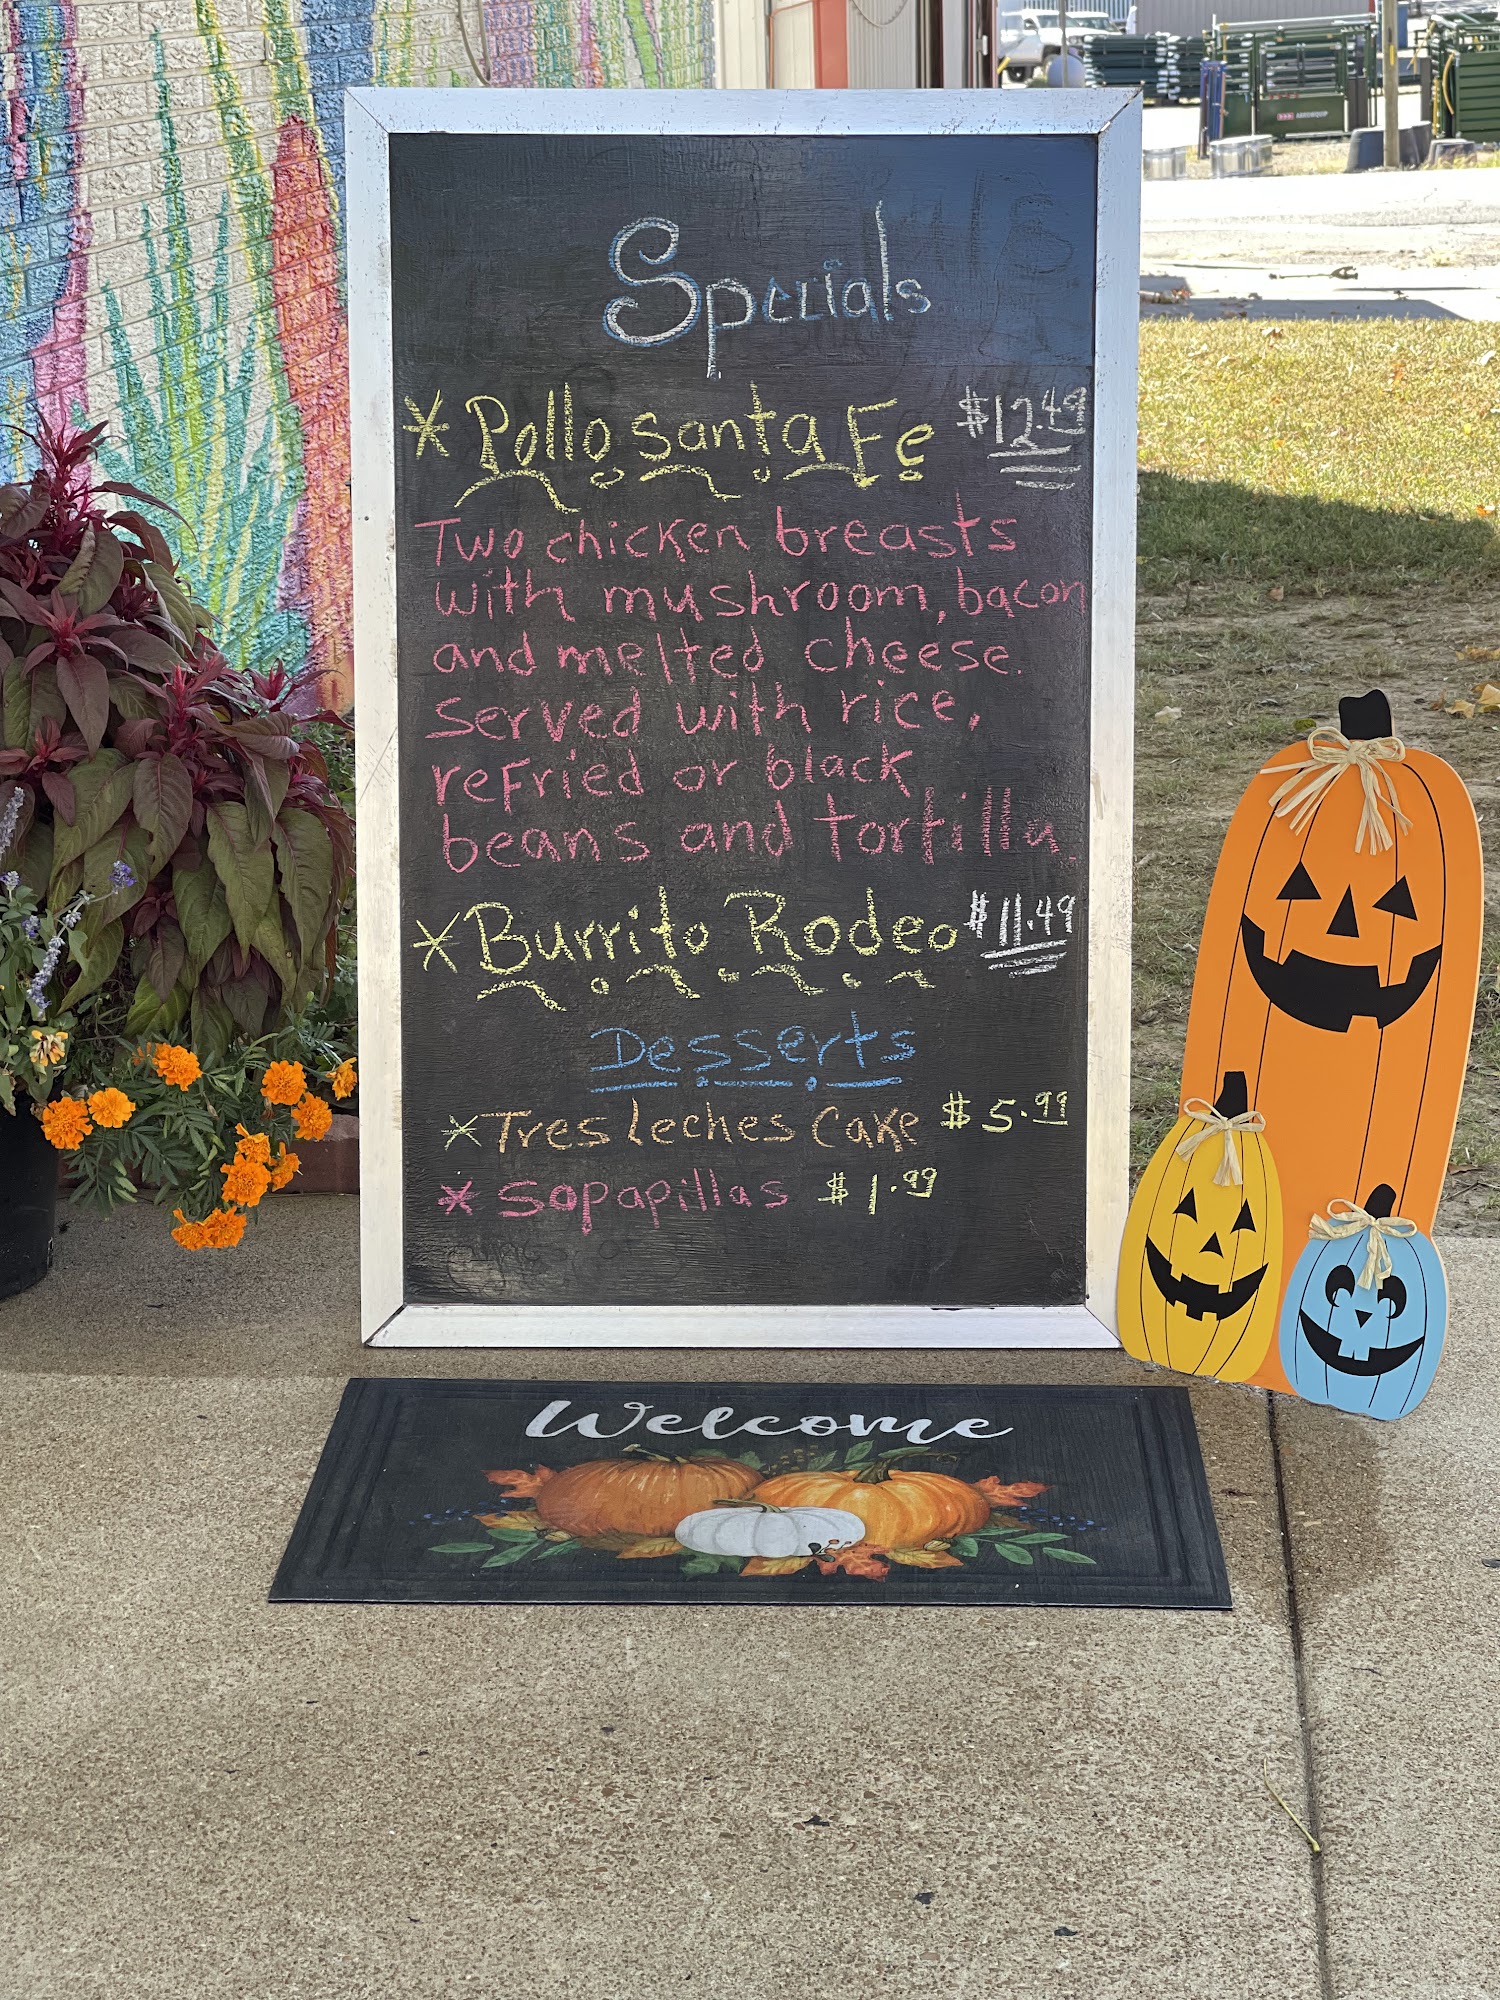 Specials
* Pollo santa Fe $12.49
Two chicken breasts
with mushroom, bacon
and melted cheese.
served with rice,
refried or black
beans and tortilla.
* Burrito Rodeo $11.49
Desserts
* Tres leches Cake $5.99
* Sopapillas $1.99
Welcome